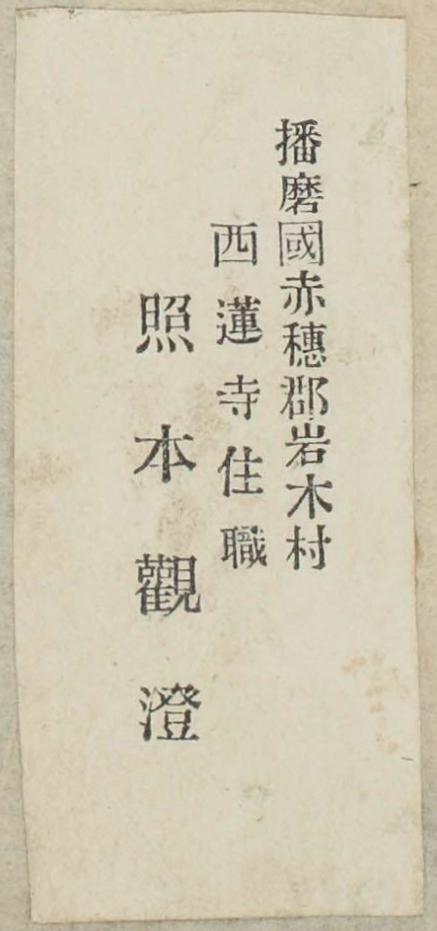 播磨國赤穗郡岩木村
西蓮寺住職
照本觀澄